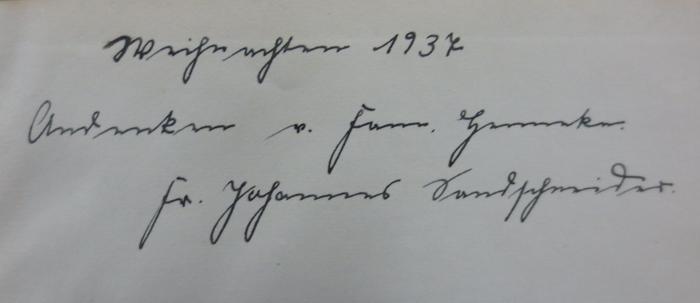 Weihnachten 1937
Andenken v. Fam. Henneke.
Fr. Johannes Sandschneider.